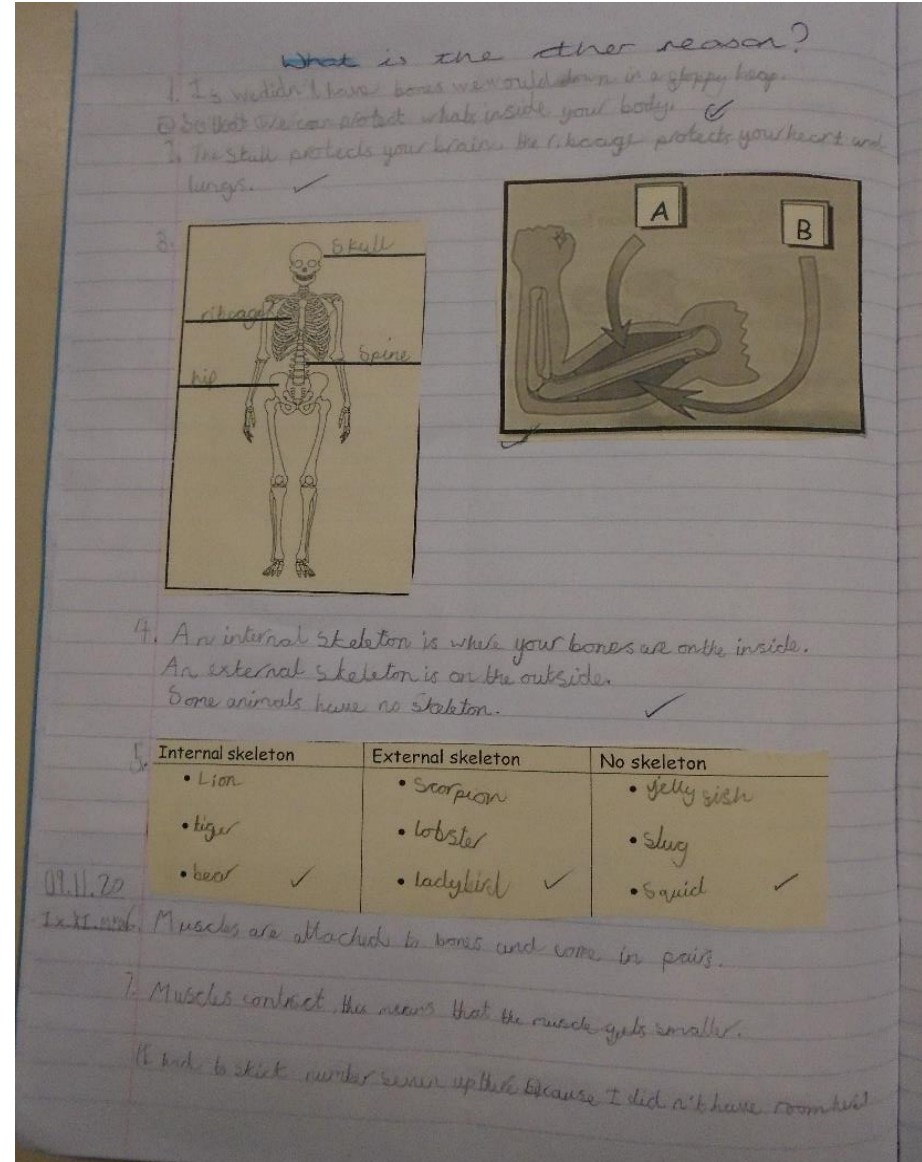 What is the other reason?
1. If we didn't have bones we would down in a floppy heap.
So that we can protect whats inside your body.
2. The skull protects your brain the ribcage protects your heart and
lungs.
A
B
3.
Skull
ribcage
Spine
hip
4. An internal skeleton is where your bones are on the inside.
An external skeleton is on the outside.
Some animals have no skeleton.
5.
Internal skeleton External skeleton No skeleton
• Lion • Scorpion • jelly fish
• tiger • lobster • Slug
• bear • ladybird • Squid
09.11.20
6. Muscles are attached to bones and come in pairs.
7. Muscles contract this means that the muscle gets smaller.
had to stick number seven up there because I did n't have room here